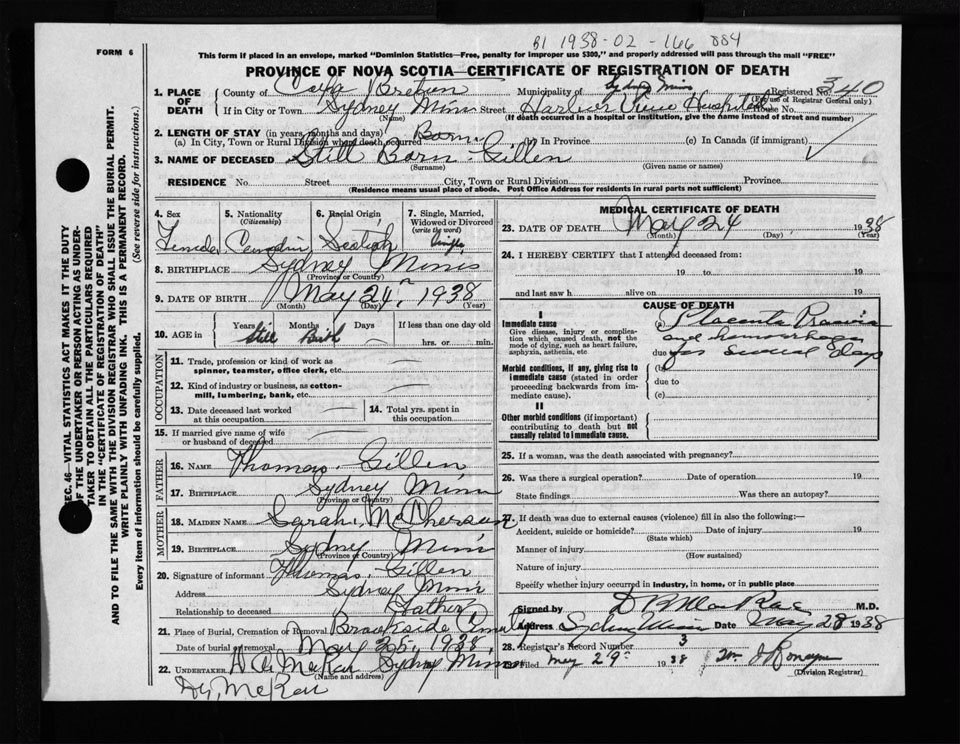 B1 1938-02-166 884
FORM 6
This form if placed in an envelope, marked "Dominion Statistics—Free, penalty for improper use $300," and properly addressed will pass through the mail "FREE"
PROVINCE OF NOVA SCOTIA—CERTIFICATE OF REGISTRATION OF DEATH
SEC. 46—VITAL STATISTICS ACT MAKES IT THE DUTY
OF THE UNDERTAKER OR PERSON ACTING AS UNDER-
TAKER TO OBTAIN ALL THE PARTICULARS REQUIRED
IN THE "CERTIFICATE OF REGISTRATION OF DEATH"
AND TO FILE THE SAME WITH THE DIVISION REGISTRAR WHO SHALL ISSUE THE BURIAL PERMIT.
WRITE PLAINLY WITH UNFADING INK. THIS IS A PERMANENT RECORD.
Every item of information should be carefully supplied. (See reverse side for instructions.)
1. PLACE OF DEATH County of Cape Breton Municipality of Sydney Mines Registered No. 340
(For use of Registrar General only)
If in City or Town Sydney Mines Street Harbor View Hospital House No.
(Name) (If death occurred in a hospital or institution, give the name instead of street and number)
2. LENGTH OF STAY (in years, months and days)
(a) In City, Town or Rural Division where death occurred Born (b) In Province (c) In Canada (if immigrant)
3. NAME OF DECEASED Still Born Gillen
(Surname) (Given name or names)
RESIDENCE No. Street City, Town or Rural Division Province
(Residence means usual place of abode. Post Office Address for residents in rural parts not sufficient)
4. Sex 5. Nationality (Citizenship) 6. Racial Origin 7. Single, Married, Widowed or Divorced (write the word)
Female Canadian Scotish Single
8. BIRTHPLACE Sydney Mines
(Province or Country)
9. DATE OF BIRTH May 24, 1938
(Month) (Day) (Year)
10. AGE in Years Months Days If less than one day old
Still Birth hrs. or min.
OCCUPATION
11. Trade, profession or kind of work as
spinner, teamster, office clerk, etc.
12. Kind of industry or business, as cotton-
mill, lumbering, bank, etc.
13. Date deceased last worked
at this occupation
14. Total yrs. spent in
this occupation
15. If married give name of wife
or husband of deceased
FATHER
16. NAME Thomas Gillen
17. BIRTHPLACE Sydney Mines
(Province or Country)
MOTHER
18. MAIDEN NAME Sarah McPherson
19. BIRTHPLACE Sydney Mines
(Province or Country)
20. Signature of informant Thomas Gillen
Address Sydney Mines
Relationship to deceased Father
21. Place of Burial, Cremation or Removal Brookside
Date of burial or removal May 25, 1938
22. UNDERTAKER McKay Sydney Mines
(Name and address)
McKay
MEDICAL CERTIFICATE OF DEATH
23. DATE OF DEATH May 24 1938
(Month) (Day) (Year)
24. I HEREBY CERTIFY that I attended deceased from:
19 to 19
and last saw h alive on 19
CAUSE OF DEATH
I
Immediate cause
Give disease, injury or complica-
tion which caused death, not the
mode of dying, such as heart failure,
asphyxia, asthenia, etc.
(a) Placenta Praevia
and hemorrhage
due to for several days
Morbid conditions, if any, giving rise to
immediate cause (stated in order
proceeding backwards from im-
mediate cause).
(b)
due to
(c)
II
Other morbid conditions (if important)
contributing to death but not
causally related to immediate cause.
25. If a woman, was the death associated with pregnancy?
26. Was there a surgical operation? Date of operation 19
State findings Was there an autopsy?
27. If death was due to external causes (violence) fill in also the following:—
Accident, suicide or homicide? Date of injury 19
(State which)
Manner of injury
(How sustained)
Nature of injury
Specify whether injury occurred in industry, in home, or in public place
Signed by D B MacRae M.D.
Address Sydney Mines Date May 28 1938
28. Registrar's Record Number 3
Filed May 29 1938
(Division Registrar)